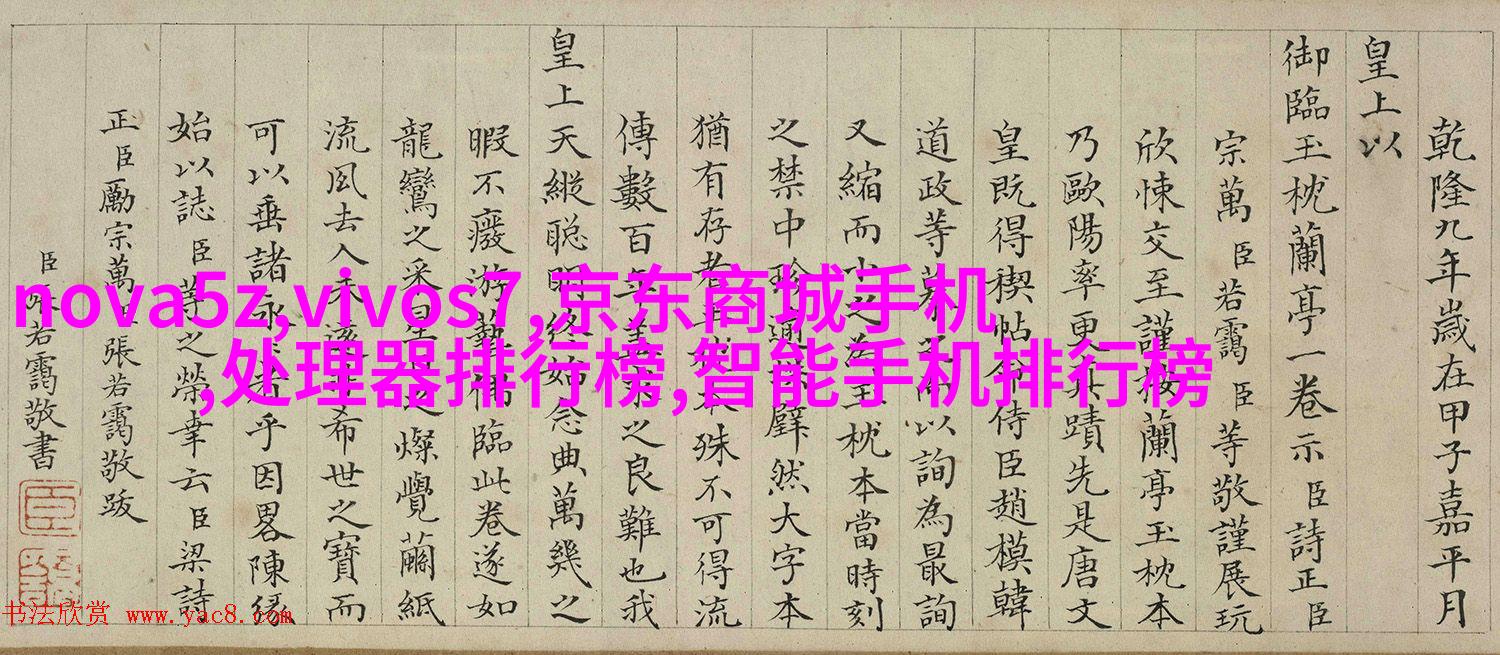 乾隆九年歲在甲子嘉平月
皇上以
御臨玉枕蘭亭一卷示臣詩正臣
宗萬臣若靄臣等敬謹展玩
欣悚交至謹按蘭亭玉枕本
乃歐陽率更真蹟先是唐文
皇既得禊帖命侍臣趙模韓
道政等以詢為最詢
又縮而小之為玉枕本當時刻
之禁中珍璧然大字本
猶有存者本殊不可得流
傳數百年之良難也我
皇上天縱聰明終始念典萬幾之
暇不癈游藝偶臨此卷遂如
龍鸞之采星之燦覺繭紙
流風去人未遠希世之寶而
可以垂諸永者乎因畧陳緣
始以誌臣等之榮幸云臣梁詩
正臣勵宗萬臣張若靄敬跋
臣張若靄敬書
臣
nova5z,vivos7,京东商城手机
,处理器排行榜,智能手机排行榜
书法欣赏 www.yac8.com